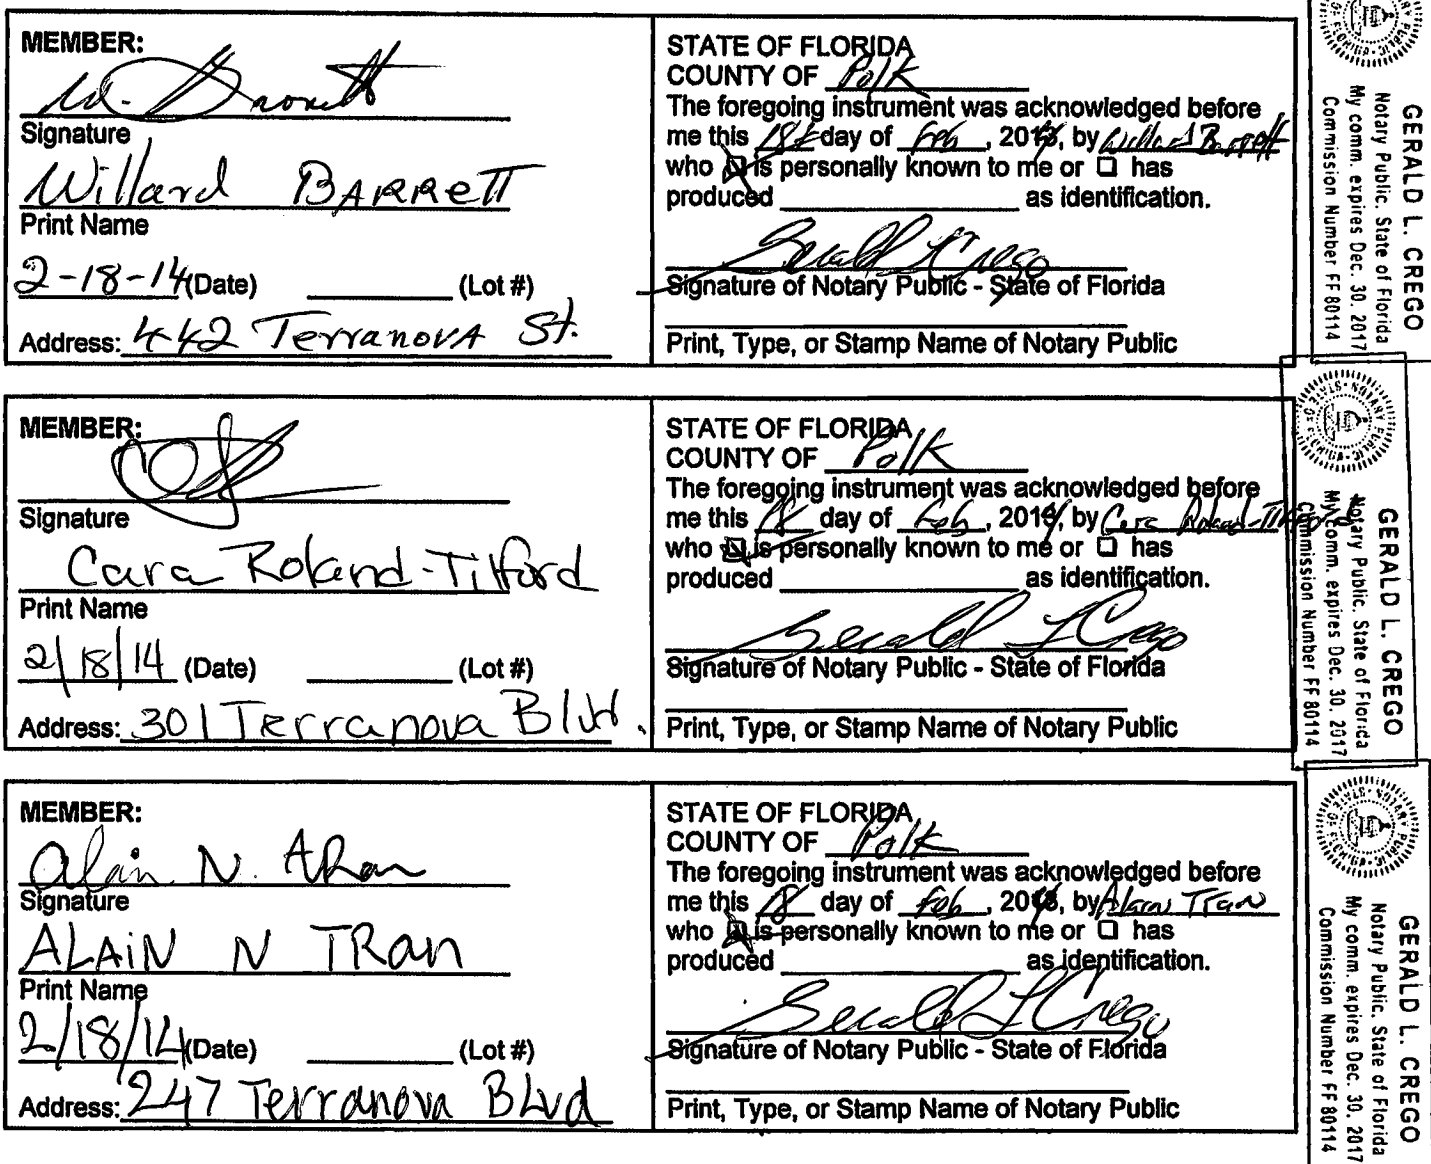 MEMBER:
W. Barrett
Signature
Willard BARRETT
Print Name
2-18-14 (Date) (Lot #)
Address: 442 Terranova St.
STATE OF FLORIDA
COUNTY OF Polk
The foregoing instrument was acknowledged before
me this 18 day of Feb, 2014, by Willard Barrett
who is personally known to me or ☐ has
produced as identification.
Gerald L Crego
Signature of Notary Public - State of Florida
Print, Type, or Stamp Name of Notary Public
GERALD L. CREGO
Notary Public. State of Florida
My comm. expires Dec. 30. 2017
Commission Number FF 80114
MEMBER:
Signature
Cara Roland-Tilford
Print Name
2/18/14 (Date) (Lot #)
Address: 301 Terranova Blvd.
STATE OF FLORIDA
COUNTY OF Polk
The foregoing instrument was acknowledged before
me this 18 day of Feb, 2014, by Cara Roland-Tilford
who is personally known to me or ☐ has
produced as identification.
Gerald L Crego
Signature of Notary Public - State of Florida
Print, Type, or Stamp Name of Notary Public
GERALD L. CREGO
Notary Public. State of Florida
My comm. expires Dec. 30. 2017
Commission Number FF 80114
MEMBER:
Alain N. Tran
Signature
ALAiN N TRan
Print Name
2/18/14 (Date) (Lot #)
Address: 247 Terranova Blvd
STATE OF FLORIDA
COUNTY OF Polk
The foregoing instrument was acknowledged before
me this 18 day of Feb, 2014, by Alain Tran
who is personally known to me or ☐ has
produced as identification.
Gerald L Crego
Signature of Notary Public - State of Florida
Print, Type, or Stamp Name of Notary Public
GERALD L. CREGO
Notary Public. State of Florida
My comm. expires Dec. 30. 2017
Commission Number FF 80114